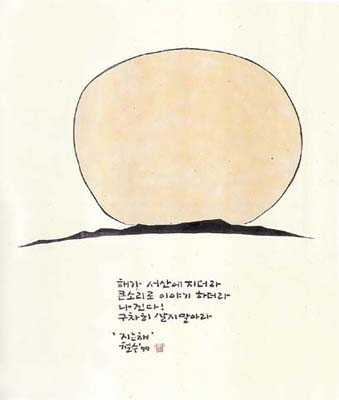 해가 서산에 지더라
큰소리로 이야기 하더라
나 진다!
구차히 살지말아라
'지는해'
철수 '99